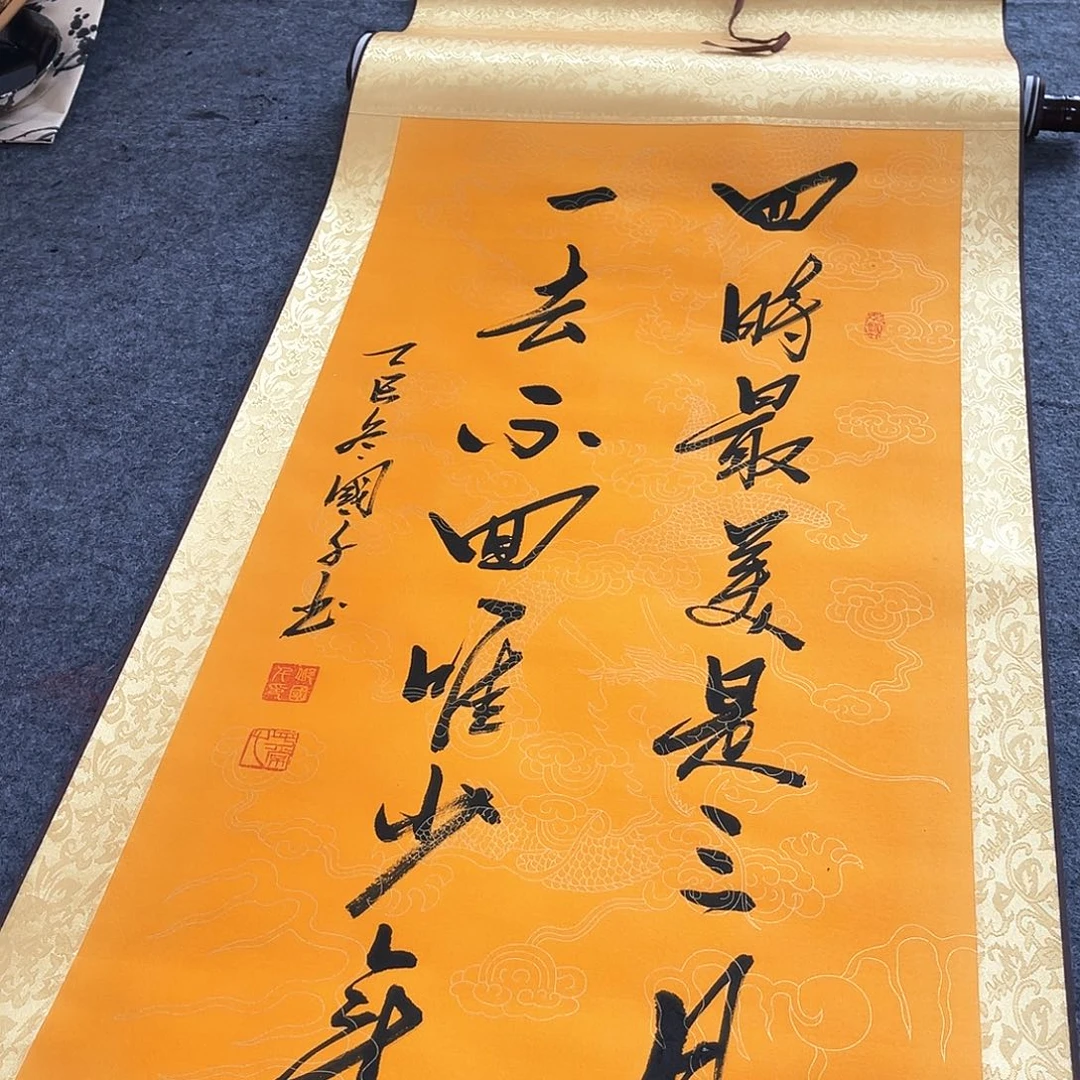 四時最美是三月
一去不回唯少年
乙巳冬國千书